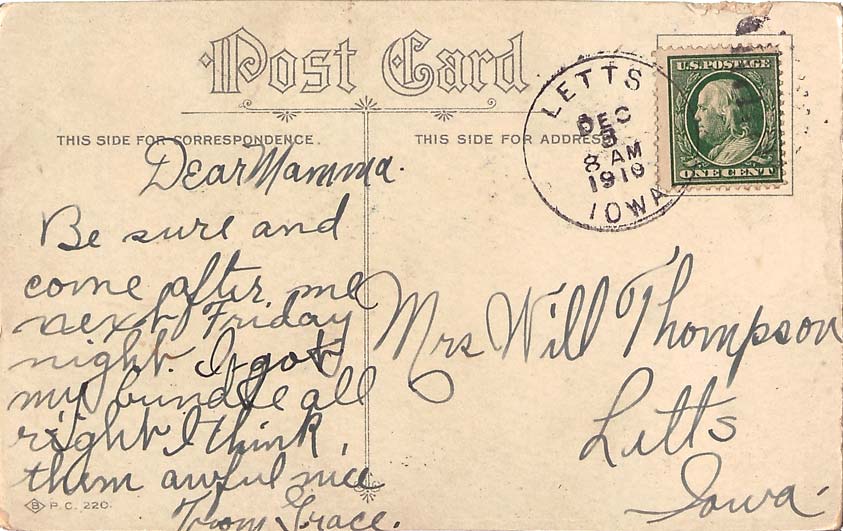 Post Card
THIS SIDE FOR CORRESPONDENCE.
THIS SIDE FOR ADDRESS
LETTS
DEC
5
8 AM
1910
IOWA
U.S. POSTAGE
ONE CENT
Dear Mamma.
Be sure and
come after me
next Friday
night. I got
my bundle all
right I think
them awful nice
From Grace.
Mrs Will Thompson
Letts
Iowa.
B P.C. 220.